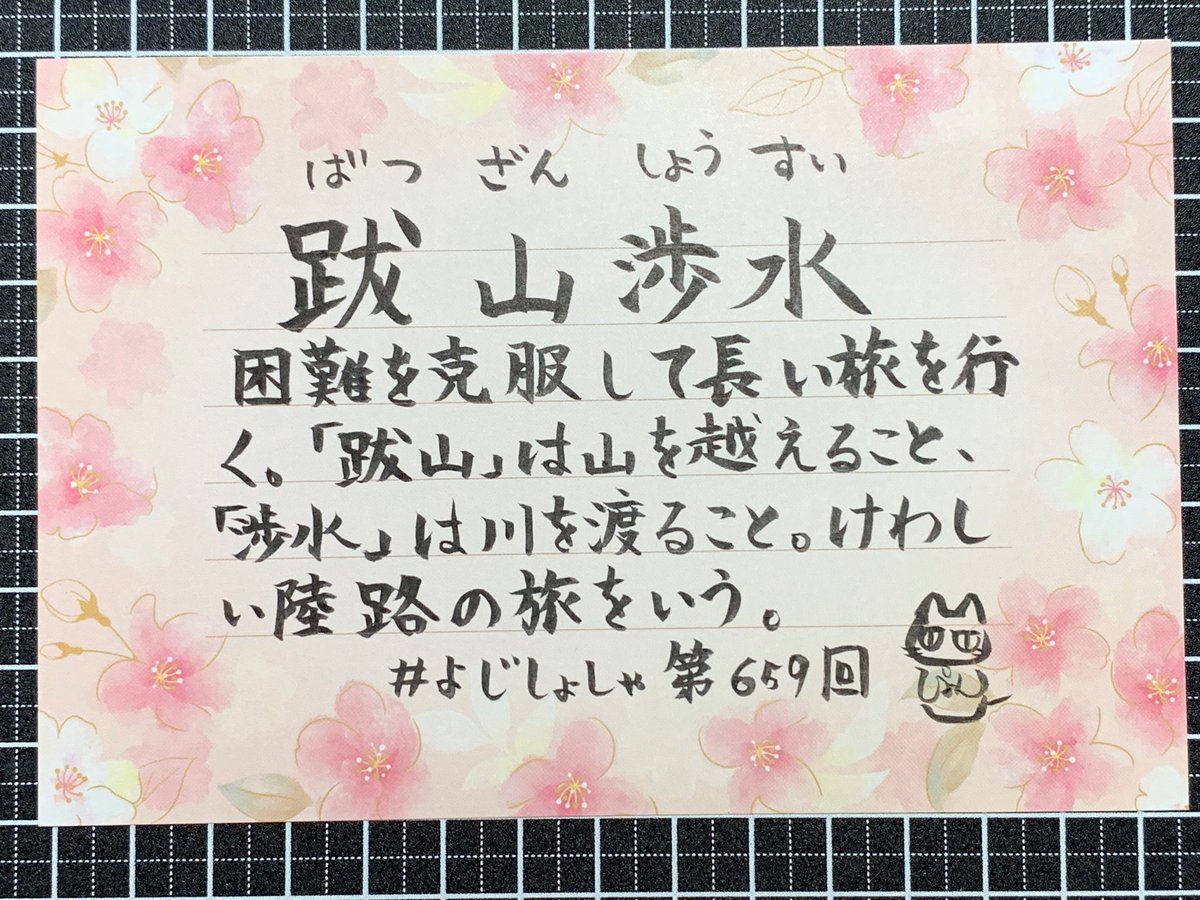 ばつ ざん しょう すい
跋山渉水
困難を克服して長い旅を行
く。「跋山」は山を越えること、
「渉水」は川を渡ること。けわし
い陸路の旅をいう。
#よじしょしゃ 第659回